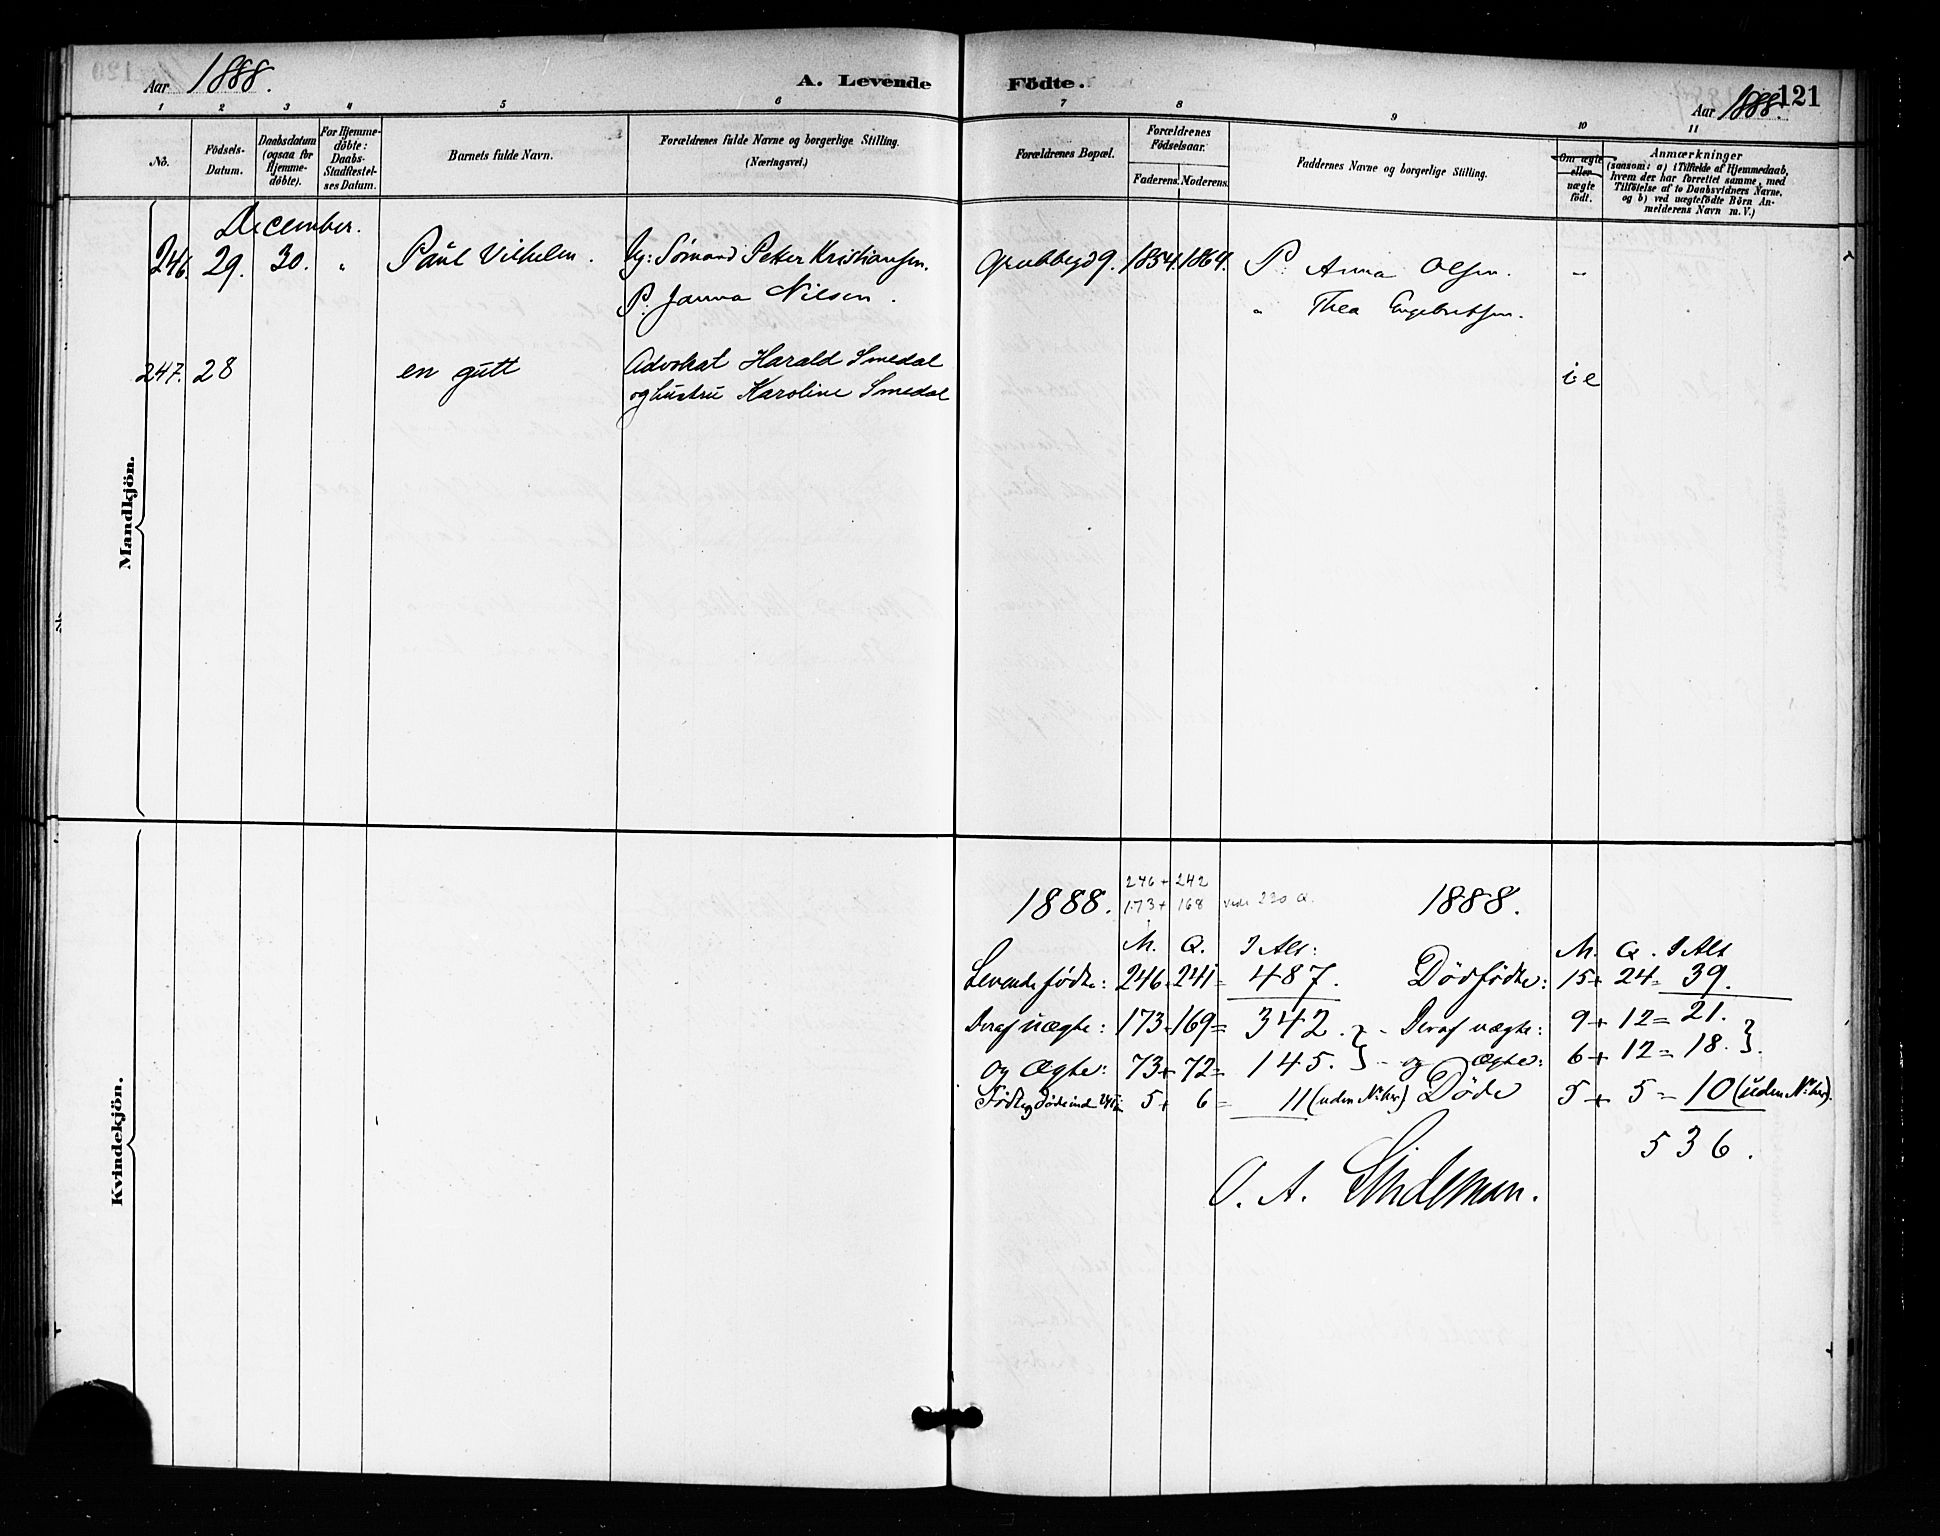 Aar 1888.
A. Levende Födte.
Aar 1888. 121
1 2 3 4 5 6 7 8 9 10 11
No.
Födsels-Datum.
Daabsdatum (ogsaa for Hjemme-döbte).
For Hjemme-döbte: Daabs-Stadfæstel-ses Datum.
Barnets fulde Navn.
Forældrenes fulde Navne og borgerlige Stilling. (Næringsvei.)
Forældrenes Bopæl.
Forældrenes Födselsaar.
Faderens. Moderens.
Faddernes Navne og borgerlige Stilling.
Om ægte eller uægte födt.
Anmærkninger
(saasom: a) i Tilfælde af Hjemmedaab,
hvem der har forrettet samme, med
Tilföielse af to Daabsvidners Navne,
og b) ved uægtefödte Börn An-
melderens Navn m. V.)
Mandkjön.
December.
246. 29. 30. " Paul Vilhelm. Ug: Sömand Petter Kristiansen. Grubbegd 9. 1854. 1864. P: Anna Olsen. "
P. Janna Nilsen. " Thea Engebretsen.
247. 28 en gutt Advokat Harald Smedal i e
og hustru Karoline Smedal
Kvindekjön.
246 + 242
1888. 173 + 168 vide 220 a. 1888.
M. Q. I Alt: M. Q. I Alt
Levende födte: 246 + 241 = 487. Dödfödte: 15 + 24 = 39.
Deraf uægte: 173 + 169 = 342. } - Deraf uægte: 9 + 12 = 21.
og Ægte: 73 + 72 = 145. } - og Ægte: 6 + 12 = 18. }.
Födte og döde ind 5 + 6 = 11 (uden No her) Döde 5 + 5 = 10 (uden No her).
536.
O. A. Lindeman.